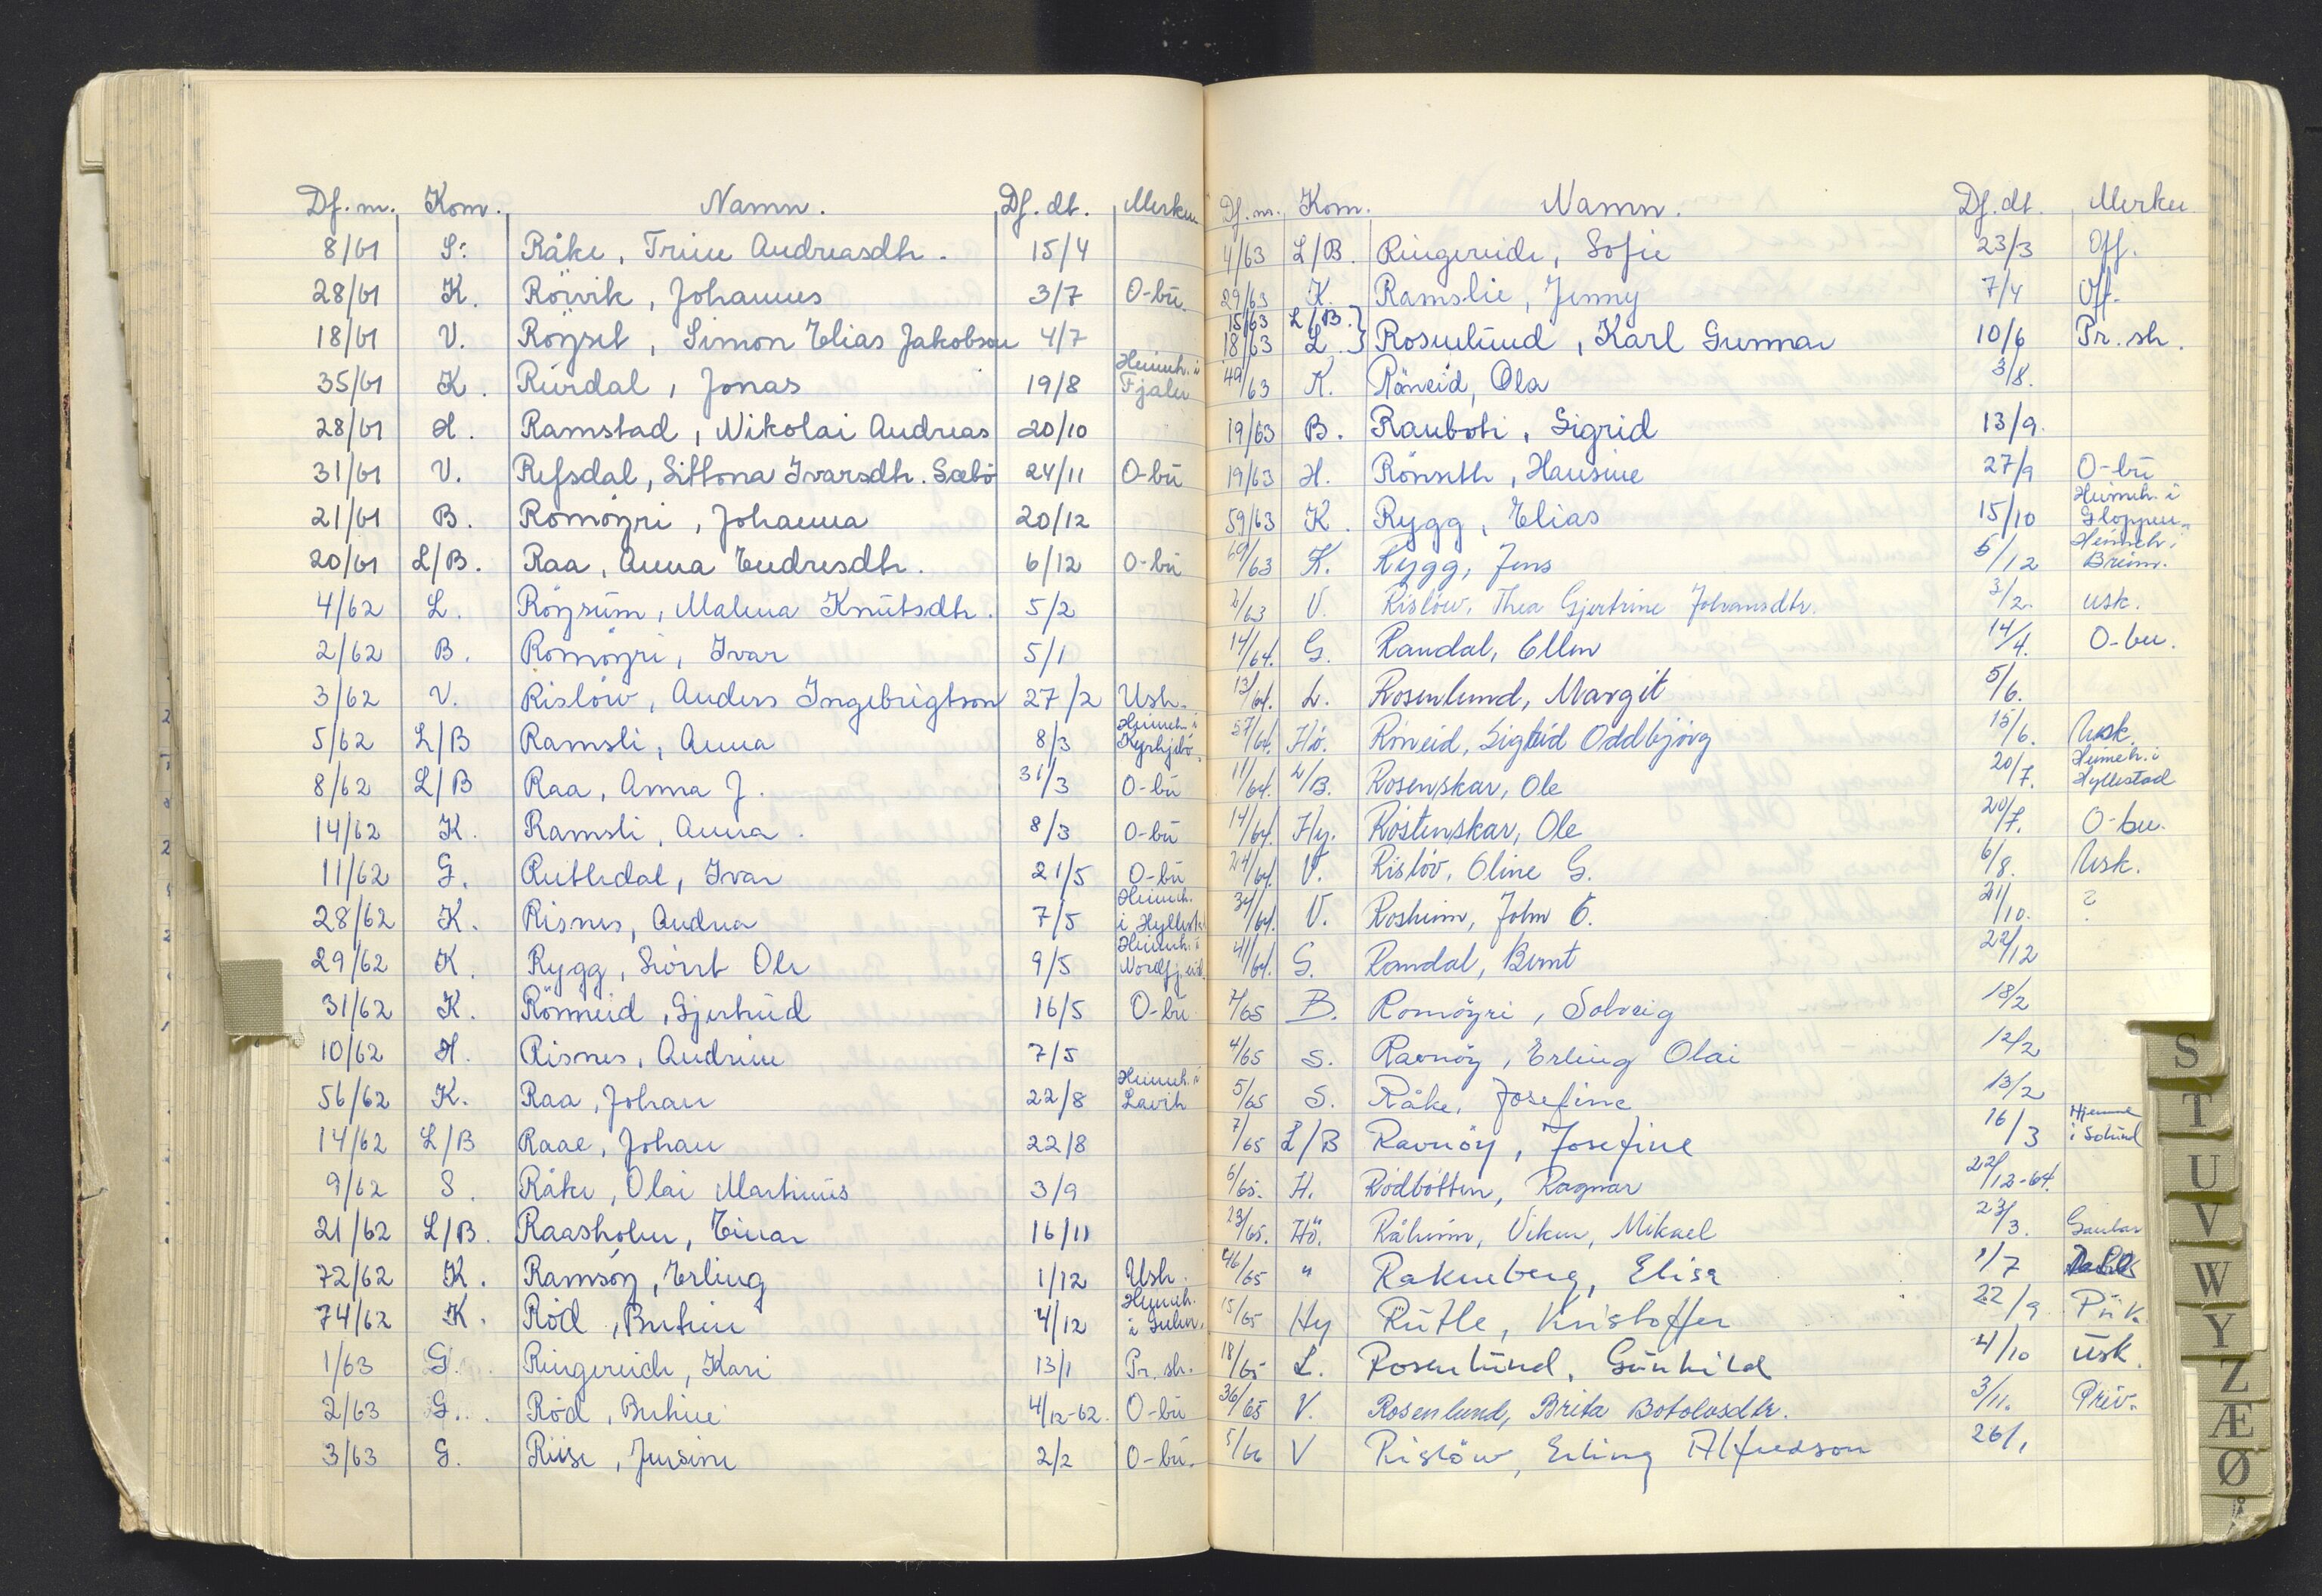 Df. nr. Kom. Namn. Df. dt. Merkn
8/61 S. Råke, Trine Andreasdtr. 15/4
28/61 K. Rörvik, Johannes 3/7 O-bu.
18/61 V. Röyset, Simon Elias Jakobson 4/7
35/61 K. Rivedal, Jonas 19/8 Heimeh. i Fjaler
28/61 A. Ramstad, Nikolai Andreas 20/10
31/61 V. Refsdal, Sittona Ivarsdtr. Sæbö 24/11 O-bu
21/61 B. Romöyri, Johanna 20/12
20/61 L/B. Raa, Anna Endresdtr. 6/12 O-bu
4/62 L. Röysum, Malena Knutsdtr. 5/2
2/62 B. Romöyri, Ivar 5/1
3/62 V. Rislöw, Anders Ingebrigtson 27/2 Usk.
5/62 L/B Ramsli, Anna 8/3 Heimeh. i Kyrkjebö.
8/62 L/B Raa, Anna J. 31/3 O-bu
14/62 K. Ramsli, Anna. 8/3 O-bu
11/62 G. Rutledal, Ivar 21/5 O-bu
28/62 K. Risnes, Andrea 7/5 Heimeh. i Hyllest.
29/62 K. Rygg, Sivert Ole 9/5 Heimeh. i Nordfj.eid.
31/62 K. Rönneid, Gjertrud 16/5 O-bu
10/62 H. Risnes, Andrine 7/5
56/62 K. Raa, Johan 22/8 Heimeh. i Lavik
14/62 L/B Raae, Johan 22/8
9/62 S. Råke, Olai Martinus 3/9
21/62 L/B. Raasholm, Einar 16/11
72/62 K. Ramsöy, Erling 1/12 Usk.
74/62 K. Röd, Bertine 4/12 Heimeh. i Gulen.
1/63 G. Ringereide, Kari 13/1 Pr. sk.
2/63 G. Röd, Bertine 4/12-62. O-bu
3/63 G. Riise, Jensine 2/2 O-bu.
Df. nr. Kom. Namn. Df. dt. Merkn
4/63 L/B. Ringereide, Sofie 23/3 Off.
29/63 K. Ramslie, Jenny 7/4 Off.
15/63 L/B. }
18/63 L. } Rosenlund, Karl Gunnar 10/6 Pr. sk.
49/63 K. Röneid, Ola 3/8.
19/63 B. Rauboti, Sigrid 13/9.
19/63 H. Rönseth, Hansine 27/9 O-bu
59/63 K. Rygg, Elias 15/10 Heimeh. i Gloppen.
69/63 K. Rygg, Jens 5/12 Heimeh. i Breim.
2/63 V. Rislöw, Thea Gjertrine Johansdtr. 3/2. usk.
14/64. G. Randal, Ellen 14/4. O-bu.
13/64. L. Rosenlund, Margit 5/6.
57/64. Hö. Röneid, Sigrid Oddbjörg 15/6. Usk.
11/64. L/B. Rosenskar, Ole 20/7. Heimeh. i Hyllestad
14/64. Hy. Röstenskar, Ole 20/7. O-bu.
24/64. V. Rislöv, Oline G. 6/8. Usk.
34/64. V. Rosheim, John O. 21/10. ?
41/64. G. Randal, Bernt 22/12
7/65 B. Romöyri, Solveig 18/2
4/65 S. Ravnöy, Erling Olai 12/2
5/65 S. Råke, Josefine 13/2
7/65 L/B Ravnöy, Josefine 16/3 Hjemme i Solund
6/65. H. Rödbotten, Ragnar 22/12-64.
23/65. Hö. Råheim, Viken, Mikael 23/3. Gaular
46/65 " Rakneberg, Elise 1/7
15/65 Hy Rutle, Kristoffer 22/9
18/65 L. Rosenlund, Gunhild 4/10 usk.
36/65 V. Rosenlund, Brita Botolvsdtr. 3/11. Priv.
5/66 V Rislöw, Erling Alfredson 26/1
S
T
U
V
W
Y
Z
Æ
Ø
Å